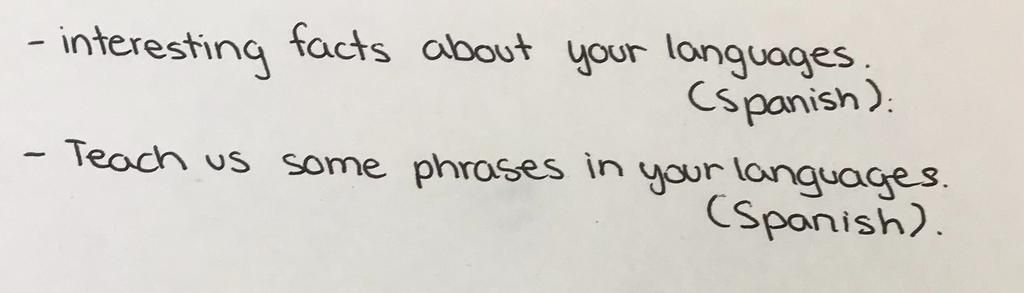 - interesting facts about your languages.
(Spanish).
- Teach us some phrases in your languages.
(Spanish).